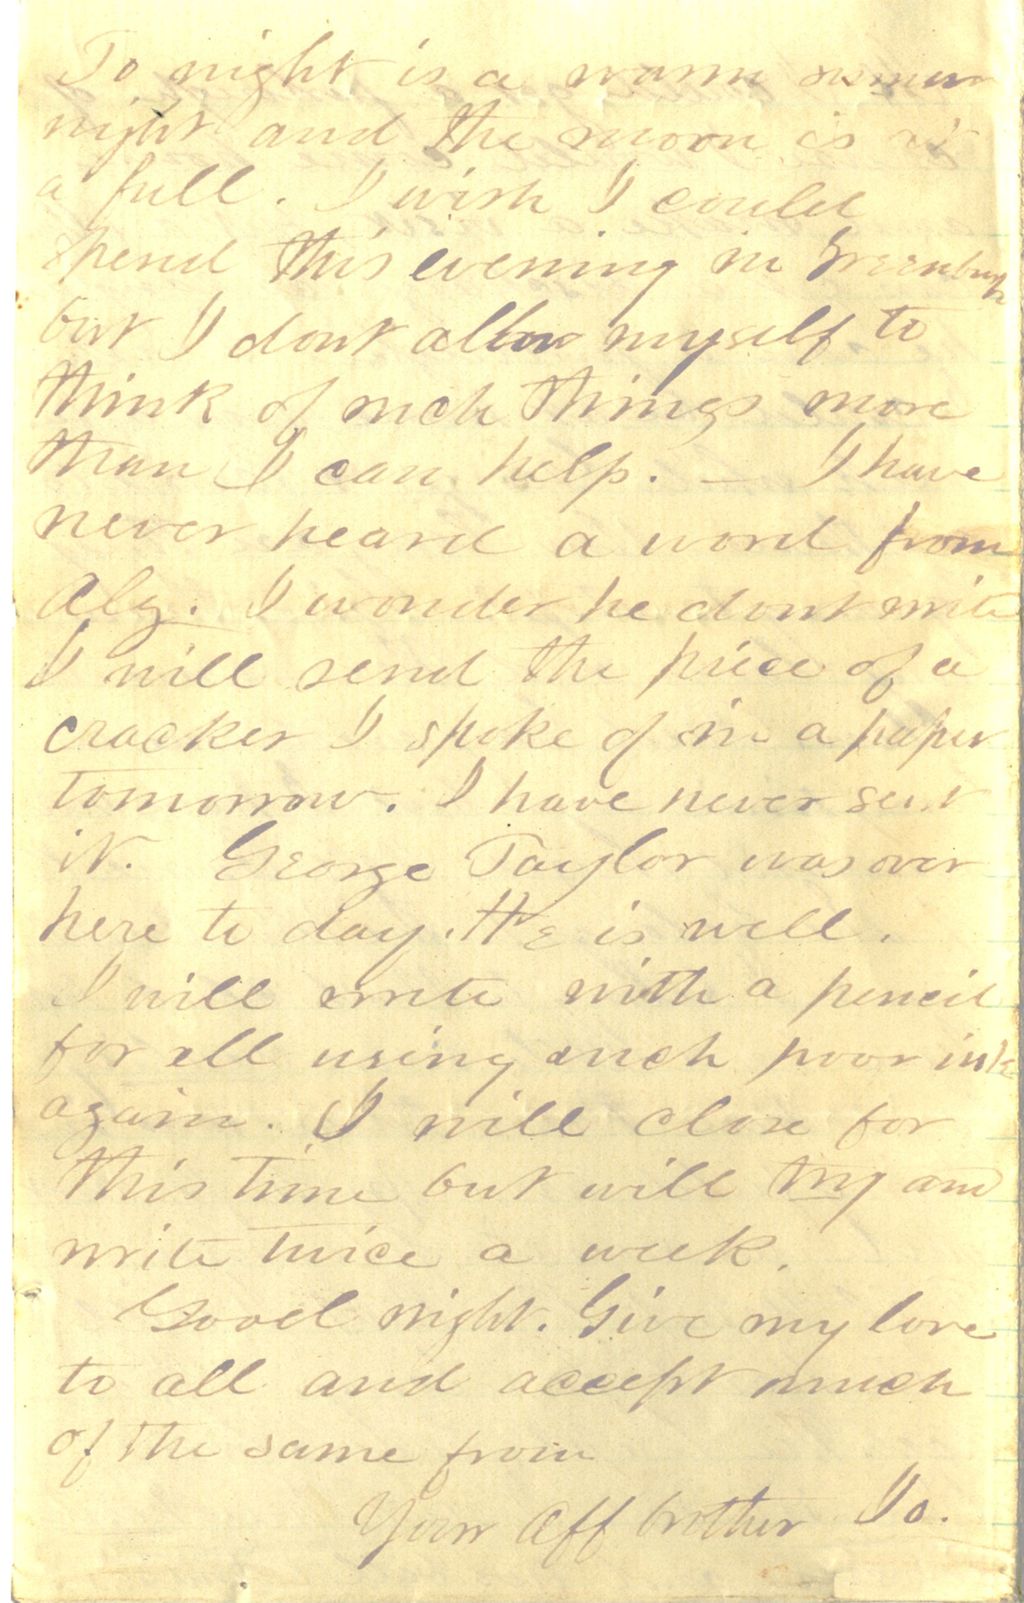 To night is a warm summer
night and the moon is at
a full. I wish I could
spend this evening in Greenbush
but I dont allow myself to
think of such things more
than I can help. — I have
never heard a word from
Alg. I wonder he dont write
I will send the piece of a
cracker I spoke of in a paper
tomorrow. I have never sent
it. George Taylor was over
here to day. He is well.
I will write with a pencil
for all using such poor ink
again. I will close for
this time but will try and
write twice a week.
Good night. Give my love
to all and accept much
of the same from
Your Aff brother Jo.